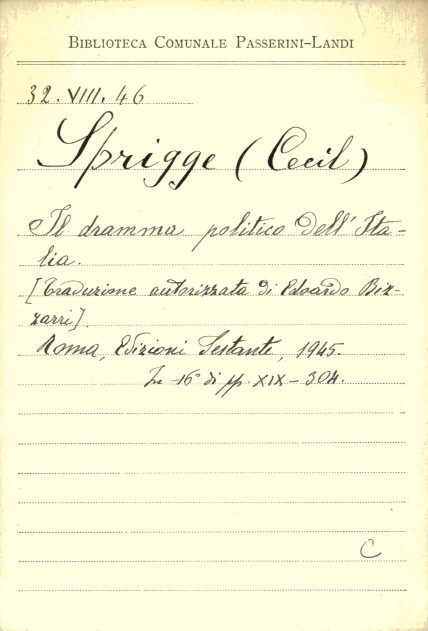 BIBLIOTECA COMUNALE PASSERINI-LANDI
32. VIII. 46
Sprigge (Cecil)
Il dramma politico dell'Ita-
lia.
[Traduzione autorizzata di Edoardo Biz-
zarri].
Roma, Edizioni Sestante, 1945.
In -16° di pp. XIX - 304.
C